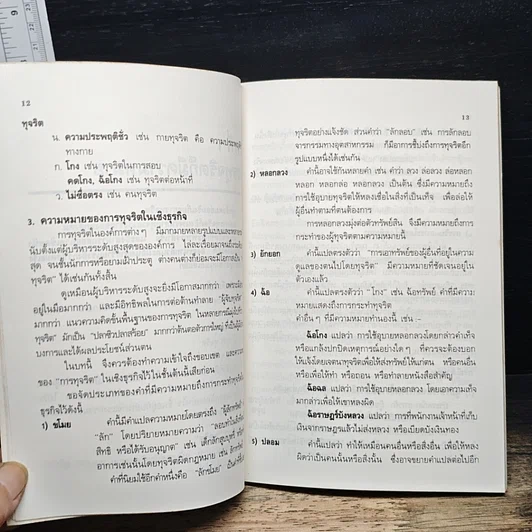 12
ทุจริต
น. ความประพฤติชั่ว เช่น กายทุจริต คือ ความประพฤติ
ทางกาย
ก. โกง เช่น ทุจริตในการสอบ
คดโกง, ฉ้อโกง เช่น ทุจริตต่อหน้าที่
ว. ไม่ซื่อตรง เช่น คนทุจริต
3. ความหมายของการทุจริตในเชิงธุรกิจ
การทุจริตในองค์การต่าง ๆ มีมากมายหลายรูปแบบและ
นับตั้งแต่ผู้บริหารระดับสูงสุดขององค์การ ไล่ละเรื่อยมาจนถึงระดับ
สุด จนชั้นนักการหรือยามเฝ้าประตู ต่างคนต่างก็ย่อมจะมีโอกาส
ทุจริต" ได้เช่นกันทั้งสิ้น
ดูเหมือนผู้บริหารระดับสูงจะยิ่งมีโอกาสมากกว่า เพราะ
อยู่ในมือมากกว่า และมีอิทธิพลในการต่อต้านทำลาย "ผู้จับทุจริต"
มากกว่า แนวความคิดขั้นพื้นฐานของการทุจริต ในหลายกรณี
มักเป็น "ปลาซิวปลาสร้อย" มากกว่าต้นตอตัวการใหญ่ ที่เป็นผู้
บงการและได้ผลประโยชน์ส่วนตน
ในบทนี้ จึงควรต้องทำความเข้าใจถึงขอบเขต และ
ของ "การทุจริต" ในเชิงธุรกิจในชั้นต้นนี้เสียก่อน
ขอจัดประเภทของคำที่มีความหมายถึงการกระทำทุจริต
ธุรกิจไว้ดังนี้
1) ขโมย คำนี้มีความหมายโดยตรงถึง
"ลัก" โดยปริยายหมายความว่า
สิทธิ หรือได้รับอนุญาต" เช่น
อาการเช่นนั้นโดยทุจริตผิดกฎหมาย เช่น
คำที่นิยมใช้อีกคำหนึ่งคือ "ลักขโมย"
13
ทุจริตอย่างแจ้งชัด ส่วนคำว่า "ลักลอบ" เช่น การลักลอบ
จารกรรมทางอุตสาหกรรม ก็มีอาการชี้บ่งถึงการทุจริตอีก
รูปแบบหนึ่งได้เช่นกัน
2) หลอกลวง คำนี้อาจใช้กันหลายคำ เช่น คำว่า ลวง ล่อลวง ล่อหลอก
หลอก หลอกล่อ หลอกลวง เป็นต้น ซึ่งมีความหมายถึงการ
ใช้อุบายทุจริตให้หลงเชื่อในสิ่งที่เป็นเท็จ เพื่อล่อให้
ผู้อื่นทำตามที่ตนต้องการ
การหลอกลวงมุ่งต่อตัวทรัพย์สิน จึงมีความหมายถึงการ
กระทำของผู้ทุจริตตามความหมายนี้
3) ยักยอก คำนี้แปลตรงตัวว่า "การเอาทรัพย์ของผู้อื่นที่อยู่ในความ
ดูแลของตนไปโดยทุจริต" มีความหมายที่ชัดเจนอยู่ใน
ตัวเองแล้ว
4) ฉ้อ คำนี้แปลตรงตัวว่า "โกง" เช่น ฉ้อทรัพย์ คำที่มีความ
หมายแสดงถึงการกระทำทุจริต
คำอื่น ๆ ที่มีความหมายทำนองนี้ เช่น
ฉ้อโกง แปลว่า การใช้อุบายหลอกลวงโดยกล่าวคำเท็จ
หรือแกล้งปกปิดเหตุการณ์อย่างใดๆ ที่ควรจะต้องบอก
ให้แจ้งโดยเจตนาทุจริตเพื่อให้ได้ทรัพย์แก่ตน หรือคนอื่น
หรือเพื่อให้เขาทำ หรือถอน หรือทำลายหนังสือสำคัญ
ฉ้อฉล แปลว่า การใช้อุบายหลอกลวง โดยเอาความเท็จ
มากล่าว เพื่อให้เขาหลงผิด
ฉ้อราษฎร์บังหลวง แปลว่า การที่พนักงานเจ้าหน้าที่เก็บ
เงินจากราษฎรแล้วไม่ส่งหลวง หรือเบียดบังเงินหลวง
5) ปลอม คำนี้แปลว่า ทำให้เหมือนคนอื่นหรือสิ่งอื่น เพื่อให้หลง
ผิดว่าเป็นคนนั้นหรือสิ่งนั้น ซึ่งอาจขยายคำแปลต่อไปอีก